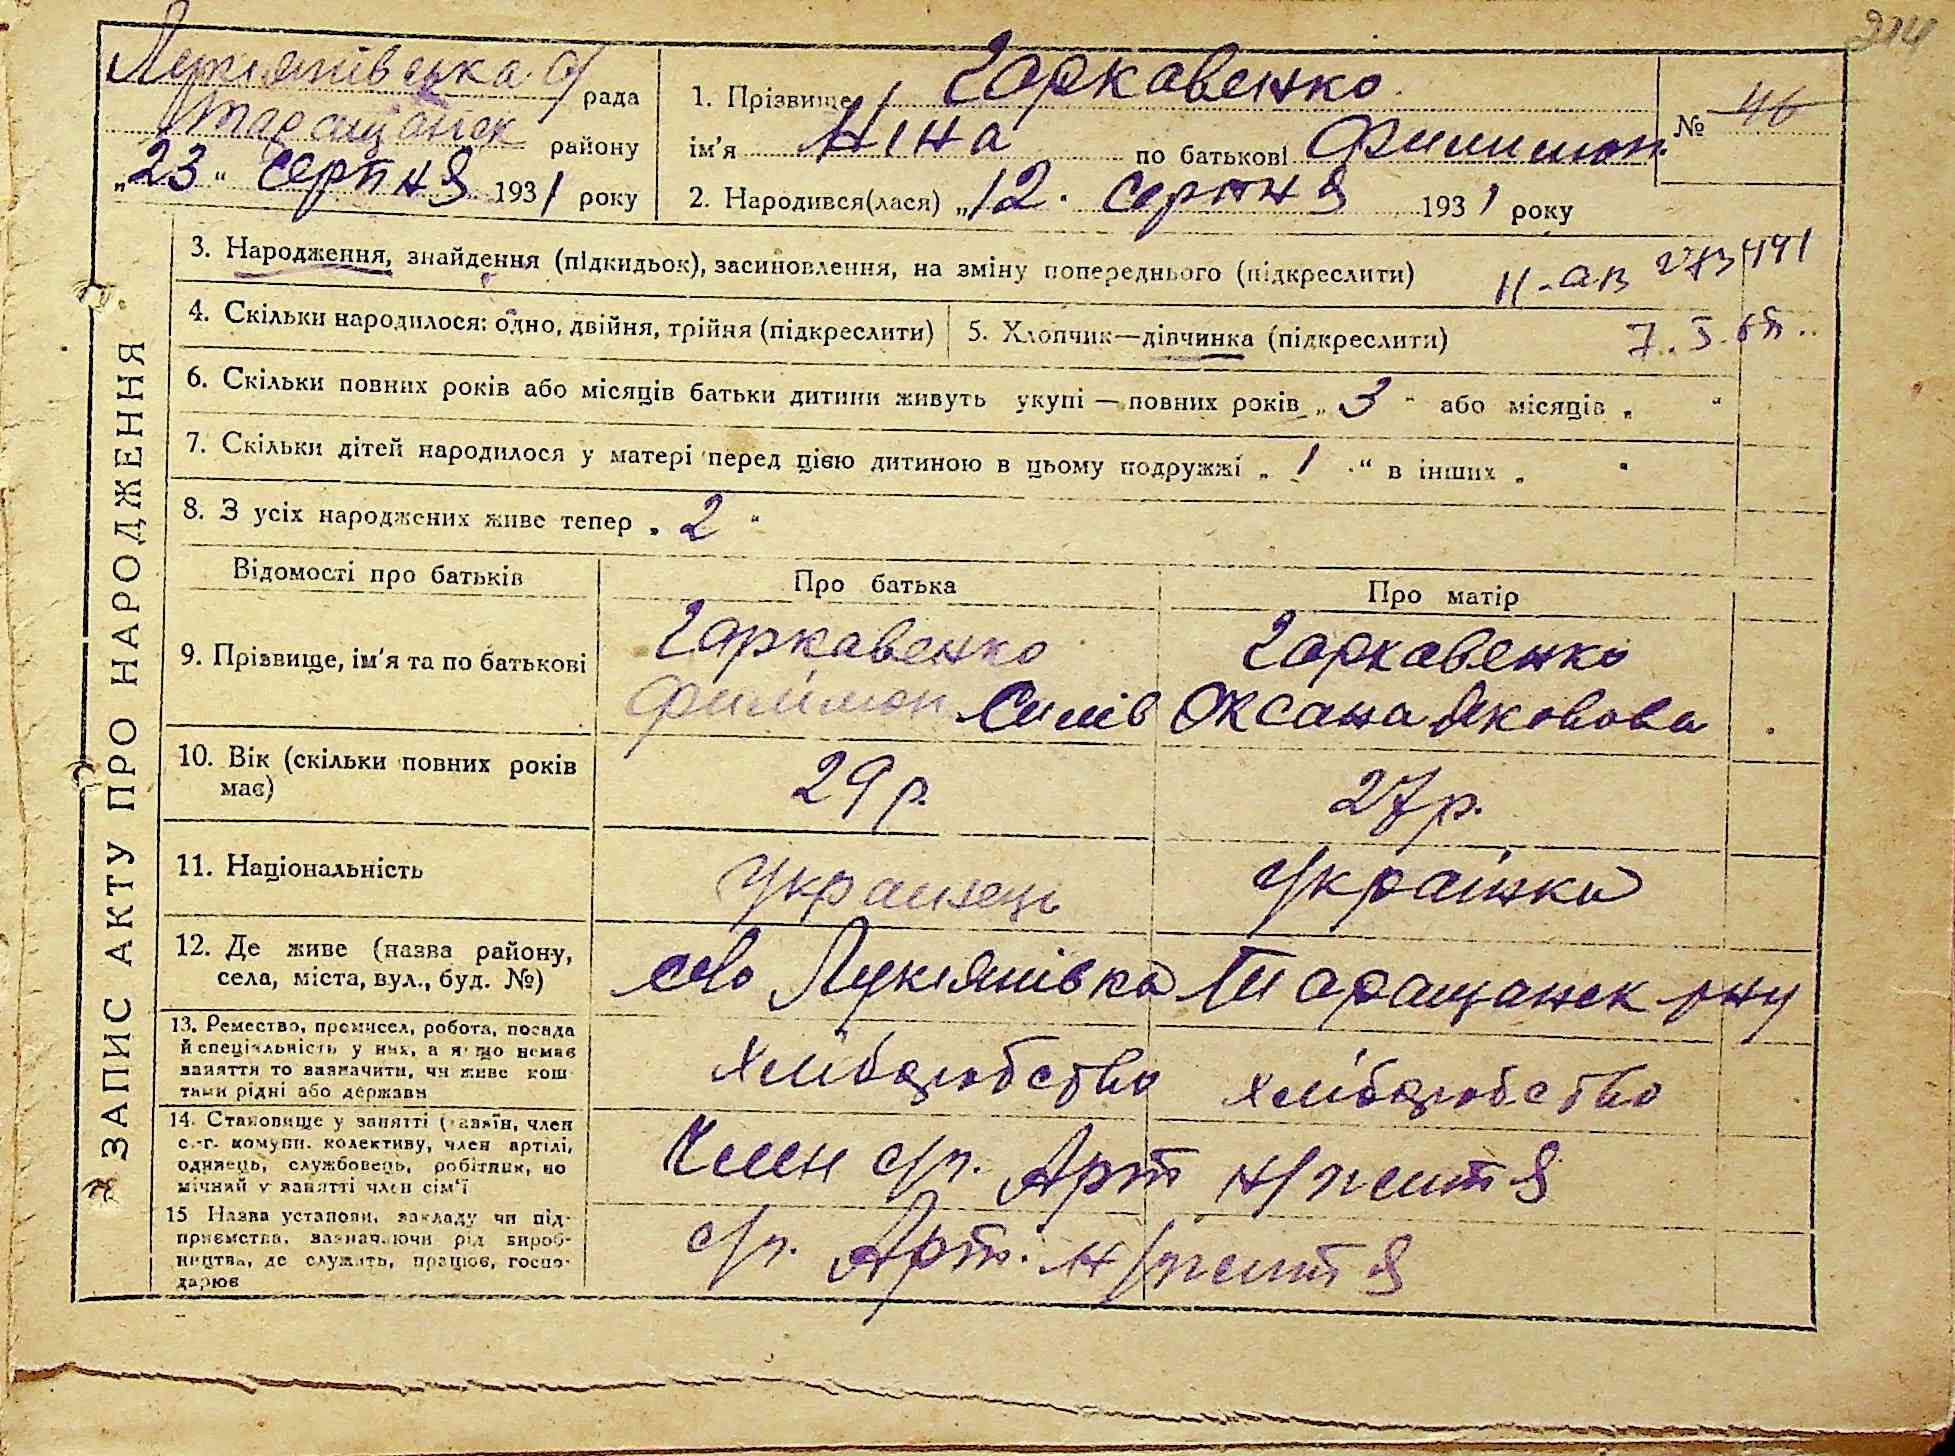 214
Лукіянівська с/рада
Таращанськ району
„23" серпня 1931 року
1. Прізвище Гаркавенко
ім'я Ніна по батькові Филимон.
№ 46
2. Народився(лася) „12. серпня 1931 року
3. Народження, знайдення (підкидьок), засиновлення, на зміну попереднього (підкреслити)
4. Скільки народилося: одно, двійня, трійня (підкреслити)
5. Хлопчик—дівчинка (підкреслити)
6. Скільки повних років або місяців батьки дитини живуть укупі — повних років „3" або місяців „ "
7. Скільки дітей народилося у матері перед цією дитиною в цьому подружжі „1" в інших „ "
8. З усіх народжених живе тепер „2"
ЗАПИС АКТУ ПРО НАРОДЖЕННЯ
Відомості про батьків
Про батька
Про матір
9. Прізвище, ім'я та по батькові
Гаркавенко
Филімон Силів
Гаркавенко
Оксана Яковова
10. Вік (скільки повних років
має)
29 р.
27 р.
11. Національність
Украинець
Украінка
12. Де живе (назва району,
села, міста, вул., буд. №)
село Лукіянівка Таращанськ р-ну
13. Ремество, промисел, робота, посада
й спеціяльність у них, а якщо немає
заняття то зазначити, чи живе кош-
тами рідні або держави
хліборобство
хліборобство
14. Становище у занятті (хазяїн, член
с.-г. комуни, колективу, член артілі,
одинець, службовець, робітник, по
мічний у занятті член сім'ї
Член с/г. Арт н/життя
15 Назва установи, закладу чи під-
приємства, вазначаючи рід вироб-
ництва, де служить, працює, госпо-
дарює
с/г. Арт. н/життя